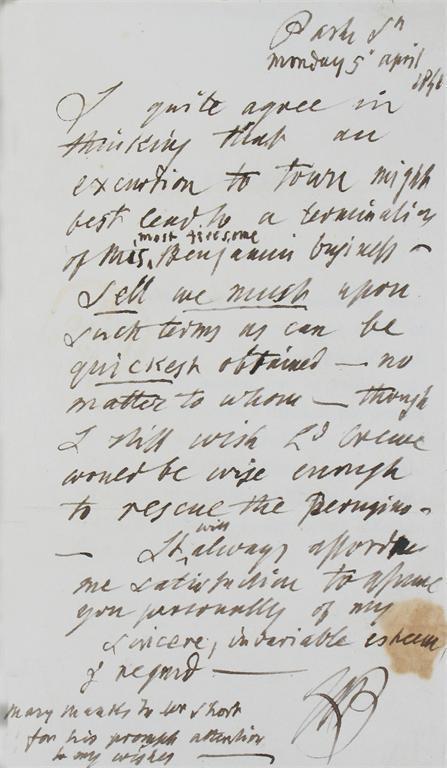 Park St
Monday 5 april
1841
I quite agree in
thinking that an
excurtion to town might
best lead to a termination
most tiresome
of this, Benjamin business -
Sell we must upon
such terms as can be
quickest obtained - no
matter to whom - though
I still wish Ld Crewe
would be wise enough
to rescue the Perugino -
will
- It always affordes
me satisfaction to assure
you personally of my
sincere, invariable esteem
& regard
Many thanks to Mr Short
for his prompt attention
to my wishes